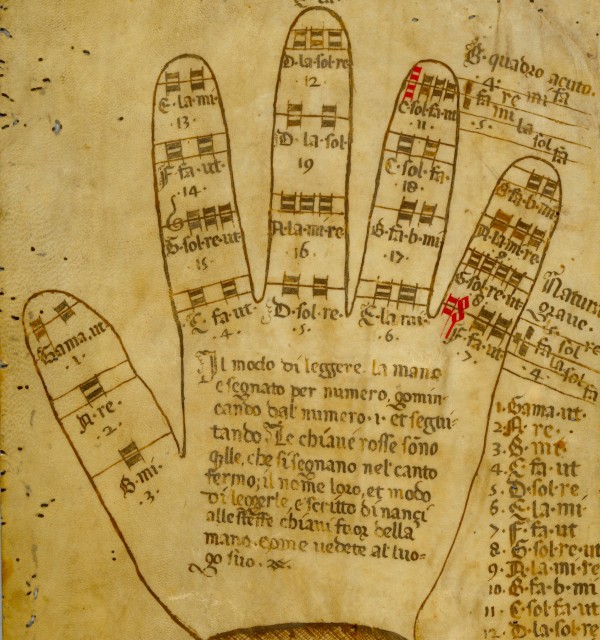 E·la·mi·
·13·
F·fa·ut·
·14·
G·sol·re·ut·
·15·
C·fa·ut·
·4·
D·la·sol·re
·12·
D·la·sol·
19
A·la·mi·re·
16·
D·sol·re·
·5·
C·sol·fa·ut
11
C·sol·fa·
18·
B·fa·b·mi·
·17·
E·la·mi·
·6·
B·fa·b·mi
A·la·mi·re
G·sol·re·ut
8
F·fa·ut
·7·
Gama·ut
·1·
A·re·
·2·
B·mi·
·3·
B·quadro acuto·
·4·
fa re mi fa
·5· mi la sol fa
Natura
grave·
fa sol
la sol fa
·4·
Il modo di leggere la mano
e segnato per numero, gomin-
cando dal numero·1· et segui-
tando· Le chiave rosse sono
qlle, che si segnano nel canto
fermo; il nome loro, et modo
di leggerle e scritto dinanci
alle stesse chiavi foor della
mano come vedete al luo-
go suo·
1·Gama·ut·
2·A·re·
3·B·mi
4·C·fa·ut
5·D·sol·re
6·E·la·mi
7·F·fa·ut
8·G·sol·re·ut
9·A·la·mi·re
10·B·fa·b·mi
11·C·sol·fa·ut
12·D·la·sol·re